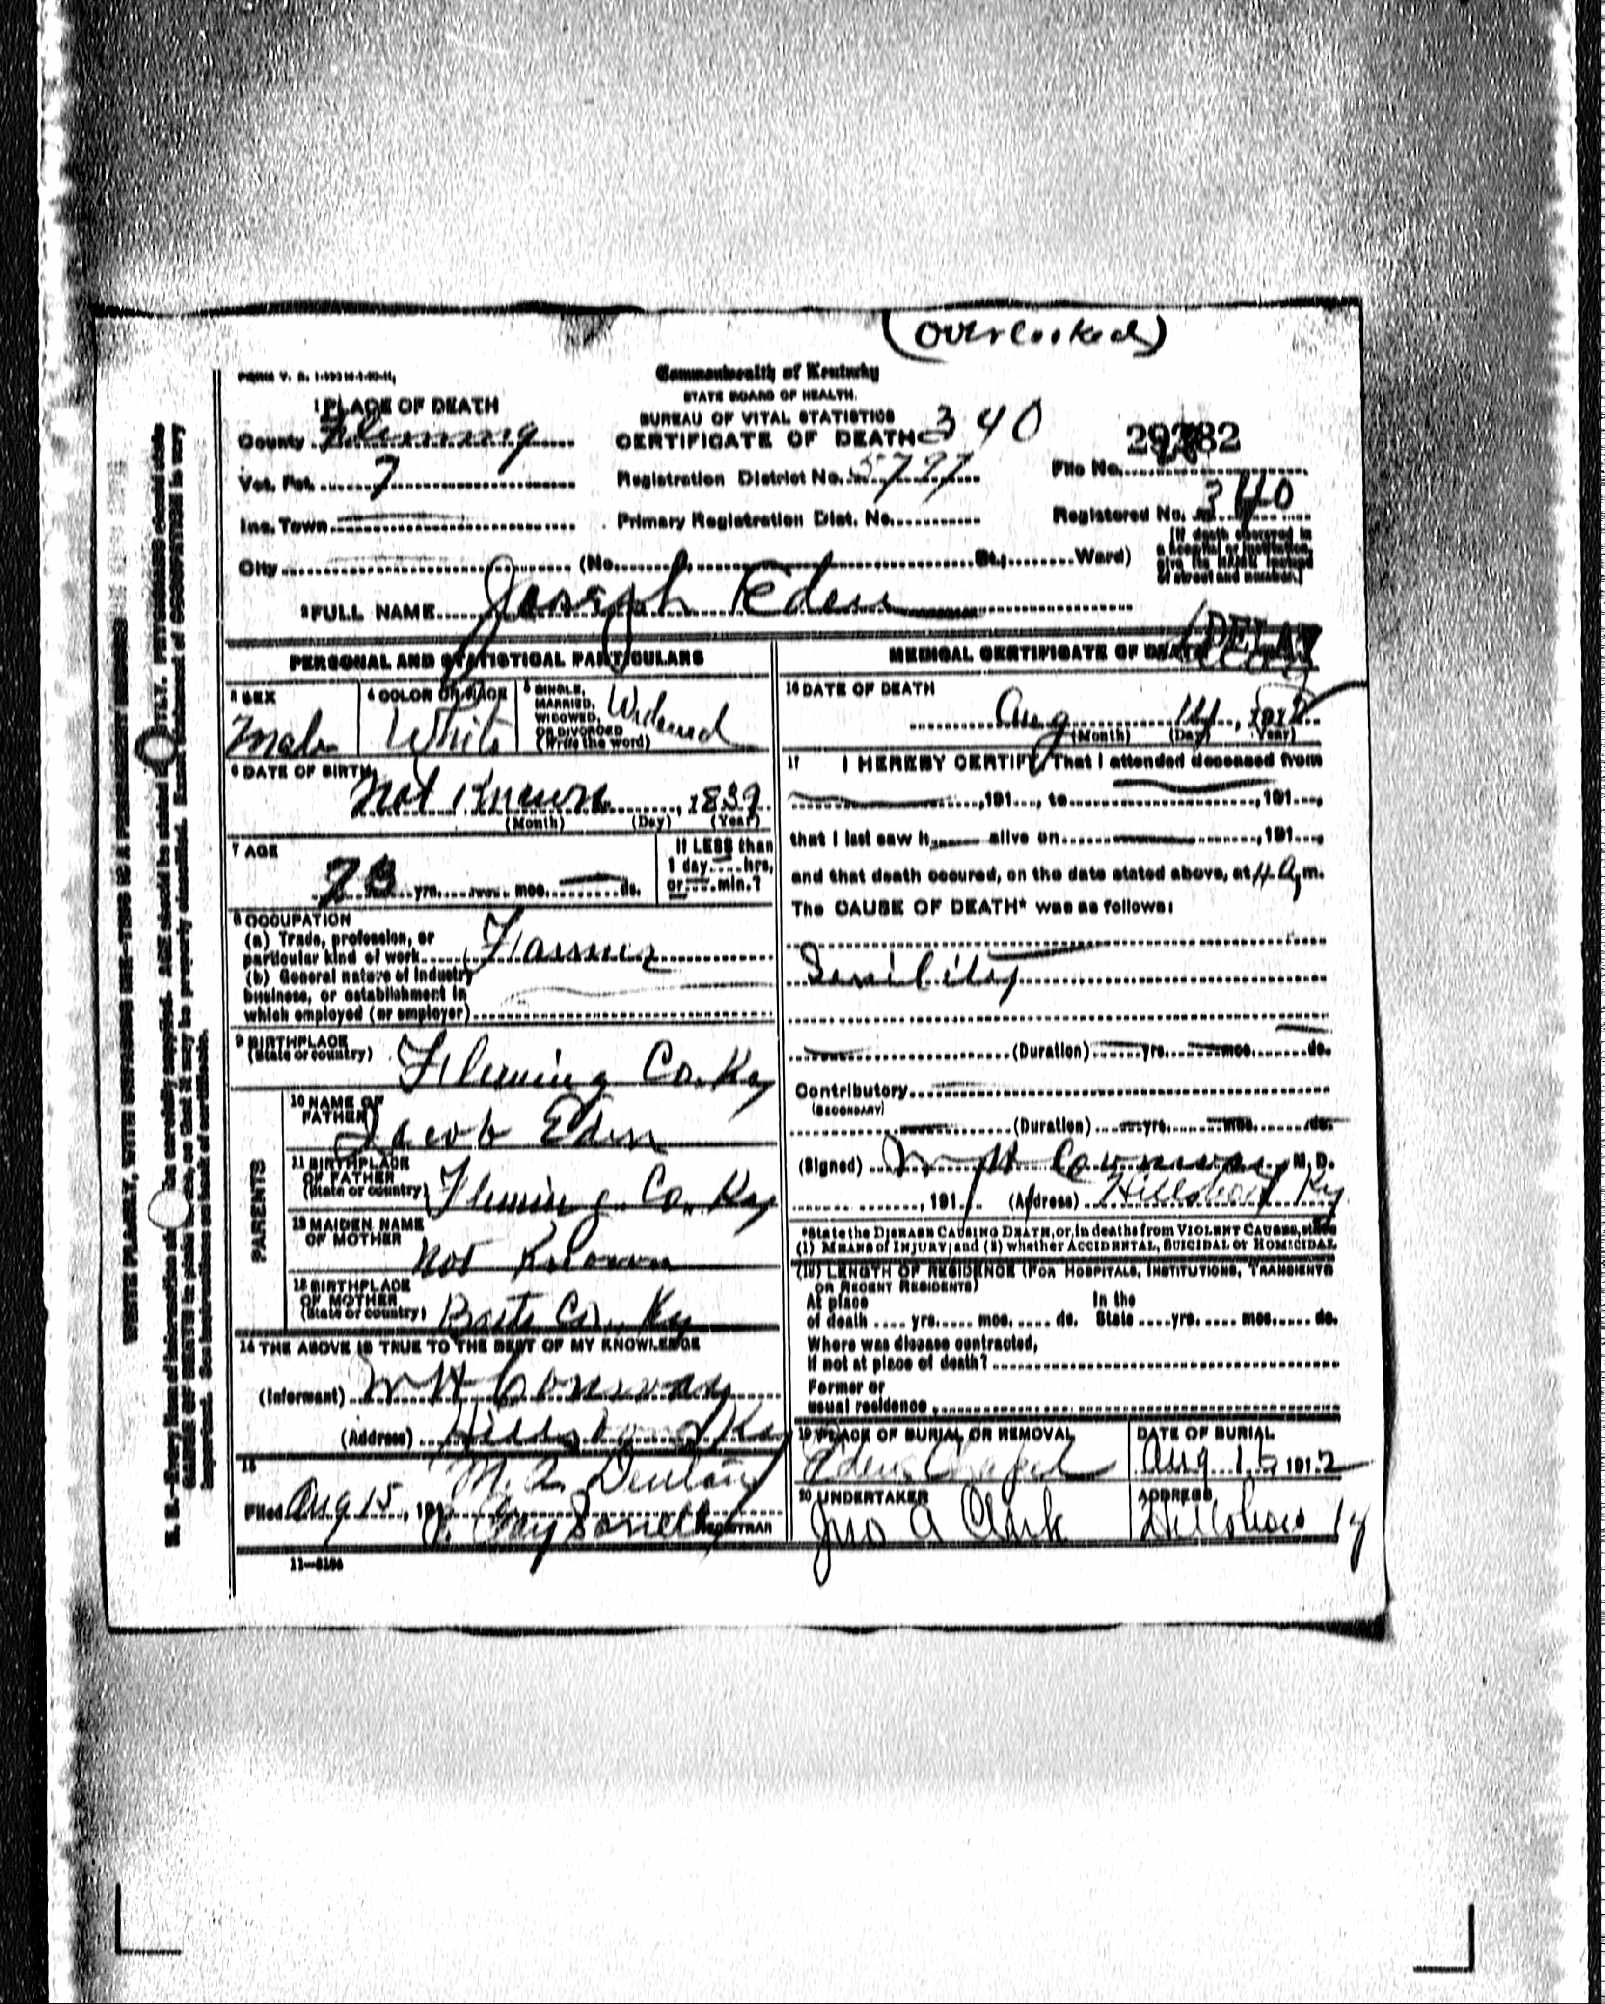 (Overlooked)
Commonwealth of Kentucky
STATE BOARD OF HEALTH.
BUREAU OF VITAL STATISTICS
CERTIFICATE OF DEATH 340
1 PLACE OF DEATH
County Fleming
Vot. Pct. 7
Registration District No. 5797
File No.
Inc. Town
Primary Registration Dist. No.
Registered No. 340
[If death occurred in
a hospital or institution,
give its NAME instead
of street and number.]
City (No. St.; Ward)
2 FULL NAME Joseph Eden
PERSONAL AND STATISTICAL PARTICULARS
3 SEX
Male
4 COLOR OR RACE
White
5 SINGLE,
MARRIED,
WIDOWED,
OR DIVORCED
(Write the word)
Widowed
6 DATE OF BIRTH
Not Known, 1839
(Month) (Day) (Year)
7 AGE
73 yrs. mos. ds.
If LESS than
1 day hrs.
or min.?
8 OCCUPATION
(a) Trade, profession, or
particular kind of work Farmer
(b) General nature of industry
business, or establishment in
which employed (or employer)
9 BIRTHPLACE
(State or country) Fleming Co. Ky
PARENTS
10 NAME OF
FATHER Jacob Eden
11 BIRTHPLACE
OF FATHER
(State or country) Fleming Co. Ky
12 MAIDEN NAME
OF MOTHER Not Known
13 BIRTHPLACE
OF MOTHER
(State or country) Co. Ky
14 THE ABOVE IS TRUE TO THE BEST OF MY KNOWLEDGE
(Informant) W H Conway
(Address) Hillsboro Ky
15
Filed Aug 15, 191
REGISTRAR
11-3184
MEDICAL CERTIFICATE OF DEATH
16 DATE OF DEATH
Aug 14, 1912
(Month) (Day) (Year)
17 I HEREBY CERTIFY, That I attended deceased from
, 191 , to , 191 ,
that I last saw h alive on , 191 ,
and that death occured, on the date stated above, at 4 A m.
The CAUSE OF DEATH* was as follows:
Senility
(Duration) yrs. mos. ds.
Contributory
(SECONDARY)
(Duration) yrs. mos. ds.
(Signed) W H Conway, M. D.
, 191 (Address) Hillsboro Ky
*State the DISEASE CAUSING DEATH, or, in deaths from VIOLENT CAUSES, state
(1) MEANS of INJURY; and (2) whether ACCIDENTAL, SUICIDAL or HOMICIDAL
(18) LENGTH OF RESIDENCE (FOR HOSPITALS, INSTITUTIONS, TRANSIENTS
OR RECENT RESIDENTS)
At place
of death yrs. mos. ds.
In the
State yrs. mos. ds.
Where was disease contracted,
if not at place of death?
Former or
usual residence
19 PLACE OF BURIAL OR REMOVAL
Edens Chapel
DATE OF BURIAL
Aug 15 1912
20 UNDERTAKER
Jno A Clark
ADDRESS
Hillsboro Ky
WRITE PLAINLY, WITH UNFADING INK—THIS IS A PERMANENT RECORD